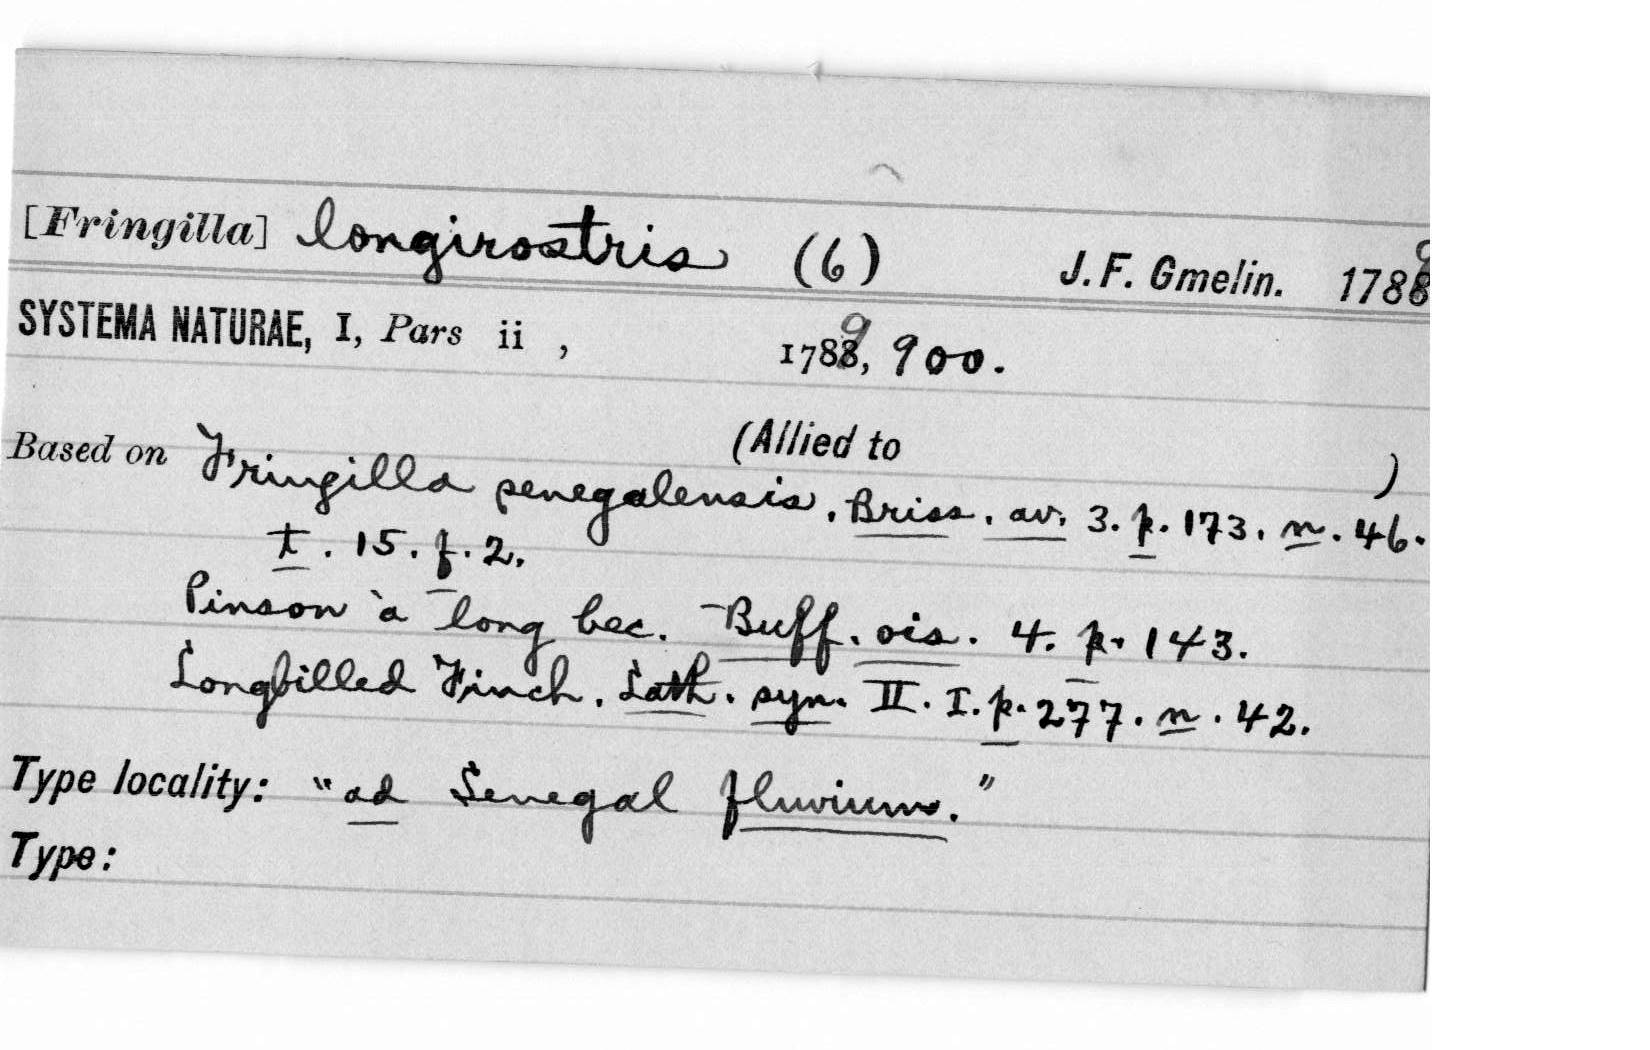 [Fringilla] longirostris (6) J. F. Gmelin. 1789
SYSTEMA NATURAE, I, Pars ii , 1789, 900.
(Allied to )
Based on Fringilla senegalensis. Briss. av. 3. p. 173. n. 46.
t. 15. f. 2.
Pinson à long bec. Buff. ois. 4. p. 143.
Longbilled Finch. Lath. syn. II. I. p. 277. n. 42.
Type locality: "ad Senegal fluvium."
Type: